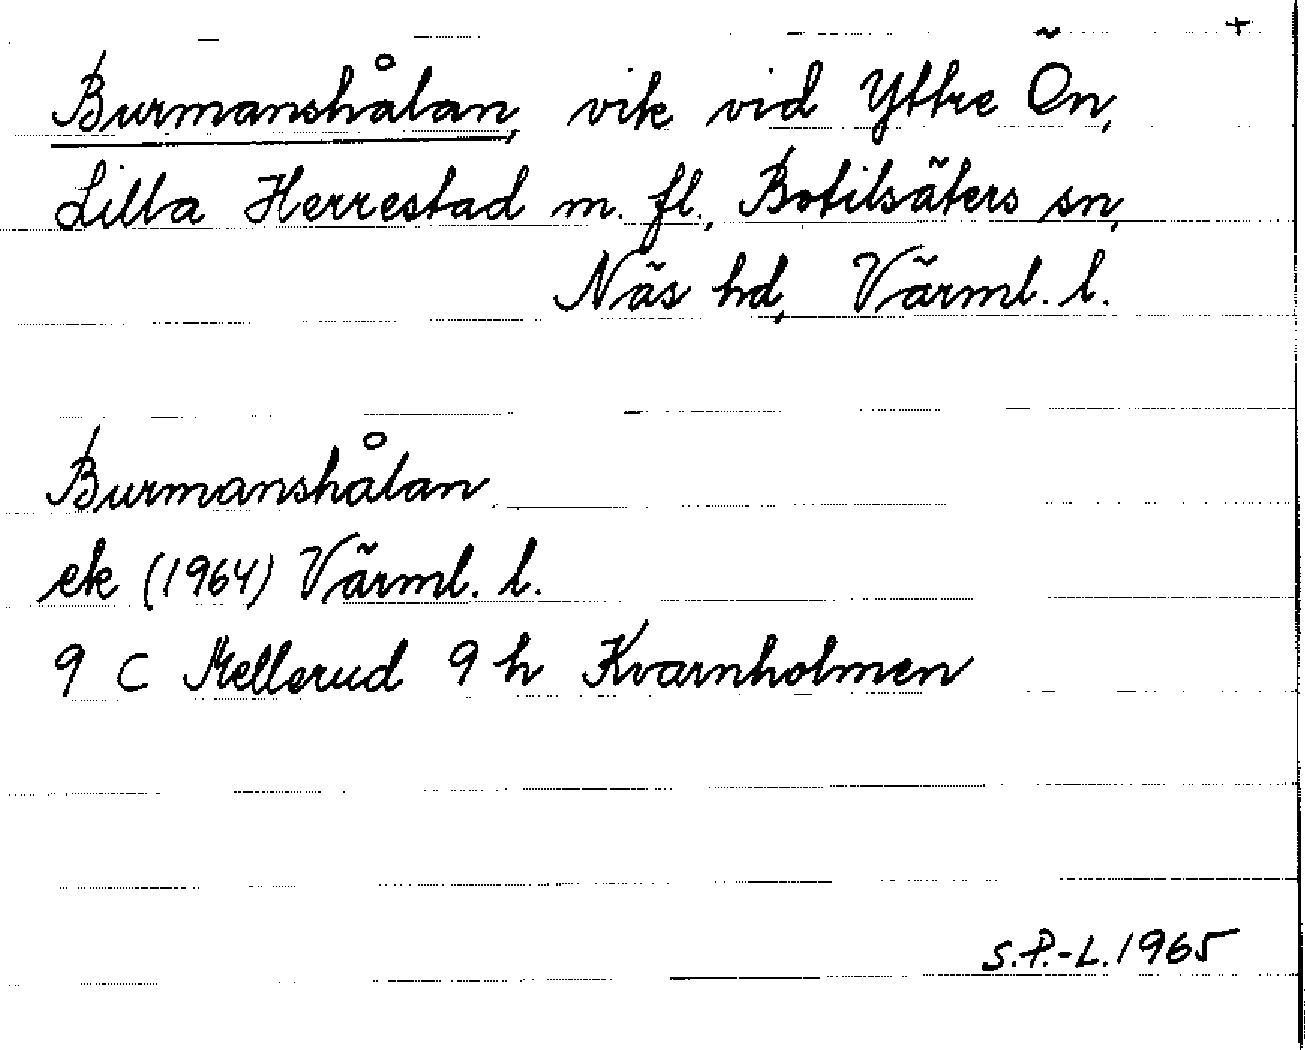 +
Burmanshålan, vik vid Yttre Ön,
Lilla Herrestad m. fl., Botilsäters sn,
Näs hd, Värml. l.
Burmanshålan
ek (1964) Värml. l.
9 C Mellerud 9 h Kvarnholmen
S.P.-L. 1965